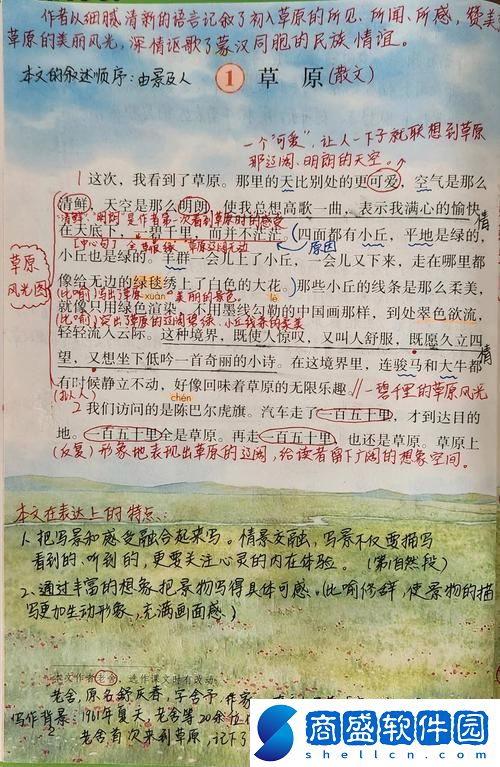 作者从细腻、清新的语言记叙了初入草原的所见、所闻、所感，赞美
草原的美丽风光，深情讴歌了蒙汉同胞的民族情谊。
本文的叙述顺序：由景及人
1 草原(散文)
一个“可爱”，让人一下子就联想到草原
那辽阔、明朗的天空。
1 这次，我看到了草原。那里的天比别处的更可爱，空气是那么
清鲜，天空是那么明朗，使我总想高歌一曲，表示我满心的愉快
情
“清鲜”“明朗”是作者第一次看到草原时的感受
在天底下，一碧千里，而并不茫茫。(四面都有小丘，平地是绿的，
【中心句】
原因
小丘也是绿的。羊群一会儿上了小丘，一会儿又下来，走在哪里都
草原
风光图
像给无边的绿毯绣上了白色的大花。)那些小丘的线条是那么柔美，
(比喻)写出了草原 xuàn 美丽的景色。 lè
就像只用绿色渲染，不用墨线勾勒的中国画那样，到处翠色欲流，
(比喻)突出了草原的辽阔碧绿、小丘线条的柔美
轻轻流入云际。这种境界，既使人惊叹，又叫人舒服，既愿久立四
望，又想坐下低吟一首奇丽的小诗。在这境界里，连骏马和大牛都
情
有时候静立不动，好像回味着草原的无限乐趣。//一碧千里的草原风光
(拟人) chén
2 我们访问的是陈巴尔虎旗。汽车走了一百五十里，才到达目的
地。一百五十里全是草原。再走一百五十里，也还是草原。草原上
(反复)形象地表现出草原的辽阔，给读者留下广阔的想象空间。
本文在表达上的特点：
1、把写景和感受融合起来写。情景交融，写景不仅要描写
看到的、听到的，更要关注心灵的内在体验。(第1自然段)
2、通过丰富的想象，把景物写得具体可感。(比喻修辞，使景物的描
写更加生动形象，充满画面感)
本文作者老舍，选作课文时有改动。
老舍，原名舒庆春，字舍予，作家
写作背景：1961年夏天，老舍等20余位
老舍首次来到草原，记下了
商盛软件园
shellcn.com